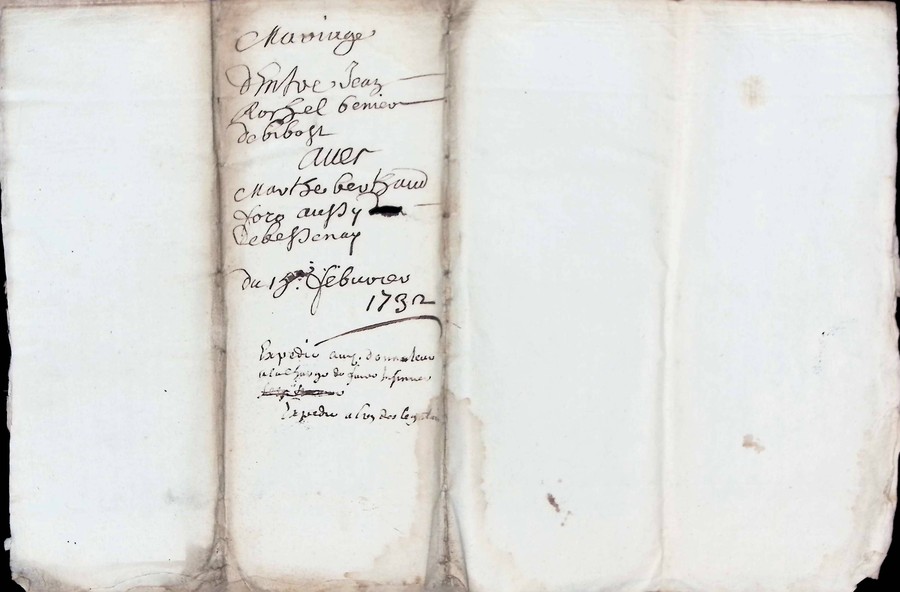 Mariage
d'Entre Jean
Rochel benier
de bibost
avec
Marthe berthaud
fore aussy
de bessenay
du 18e. febvrier
1732
Expedié aux donnateur
a la charge de faire Insinuer
Expedié a lun des